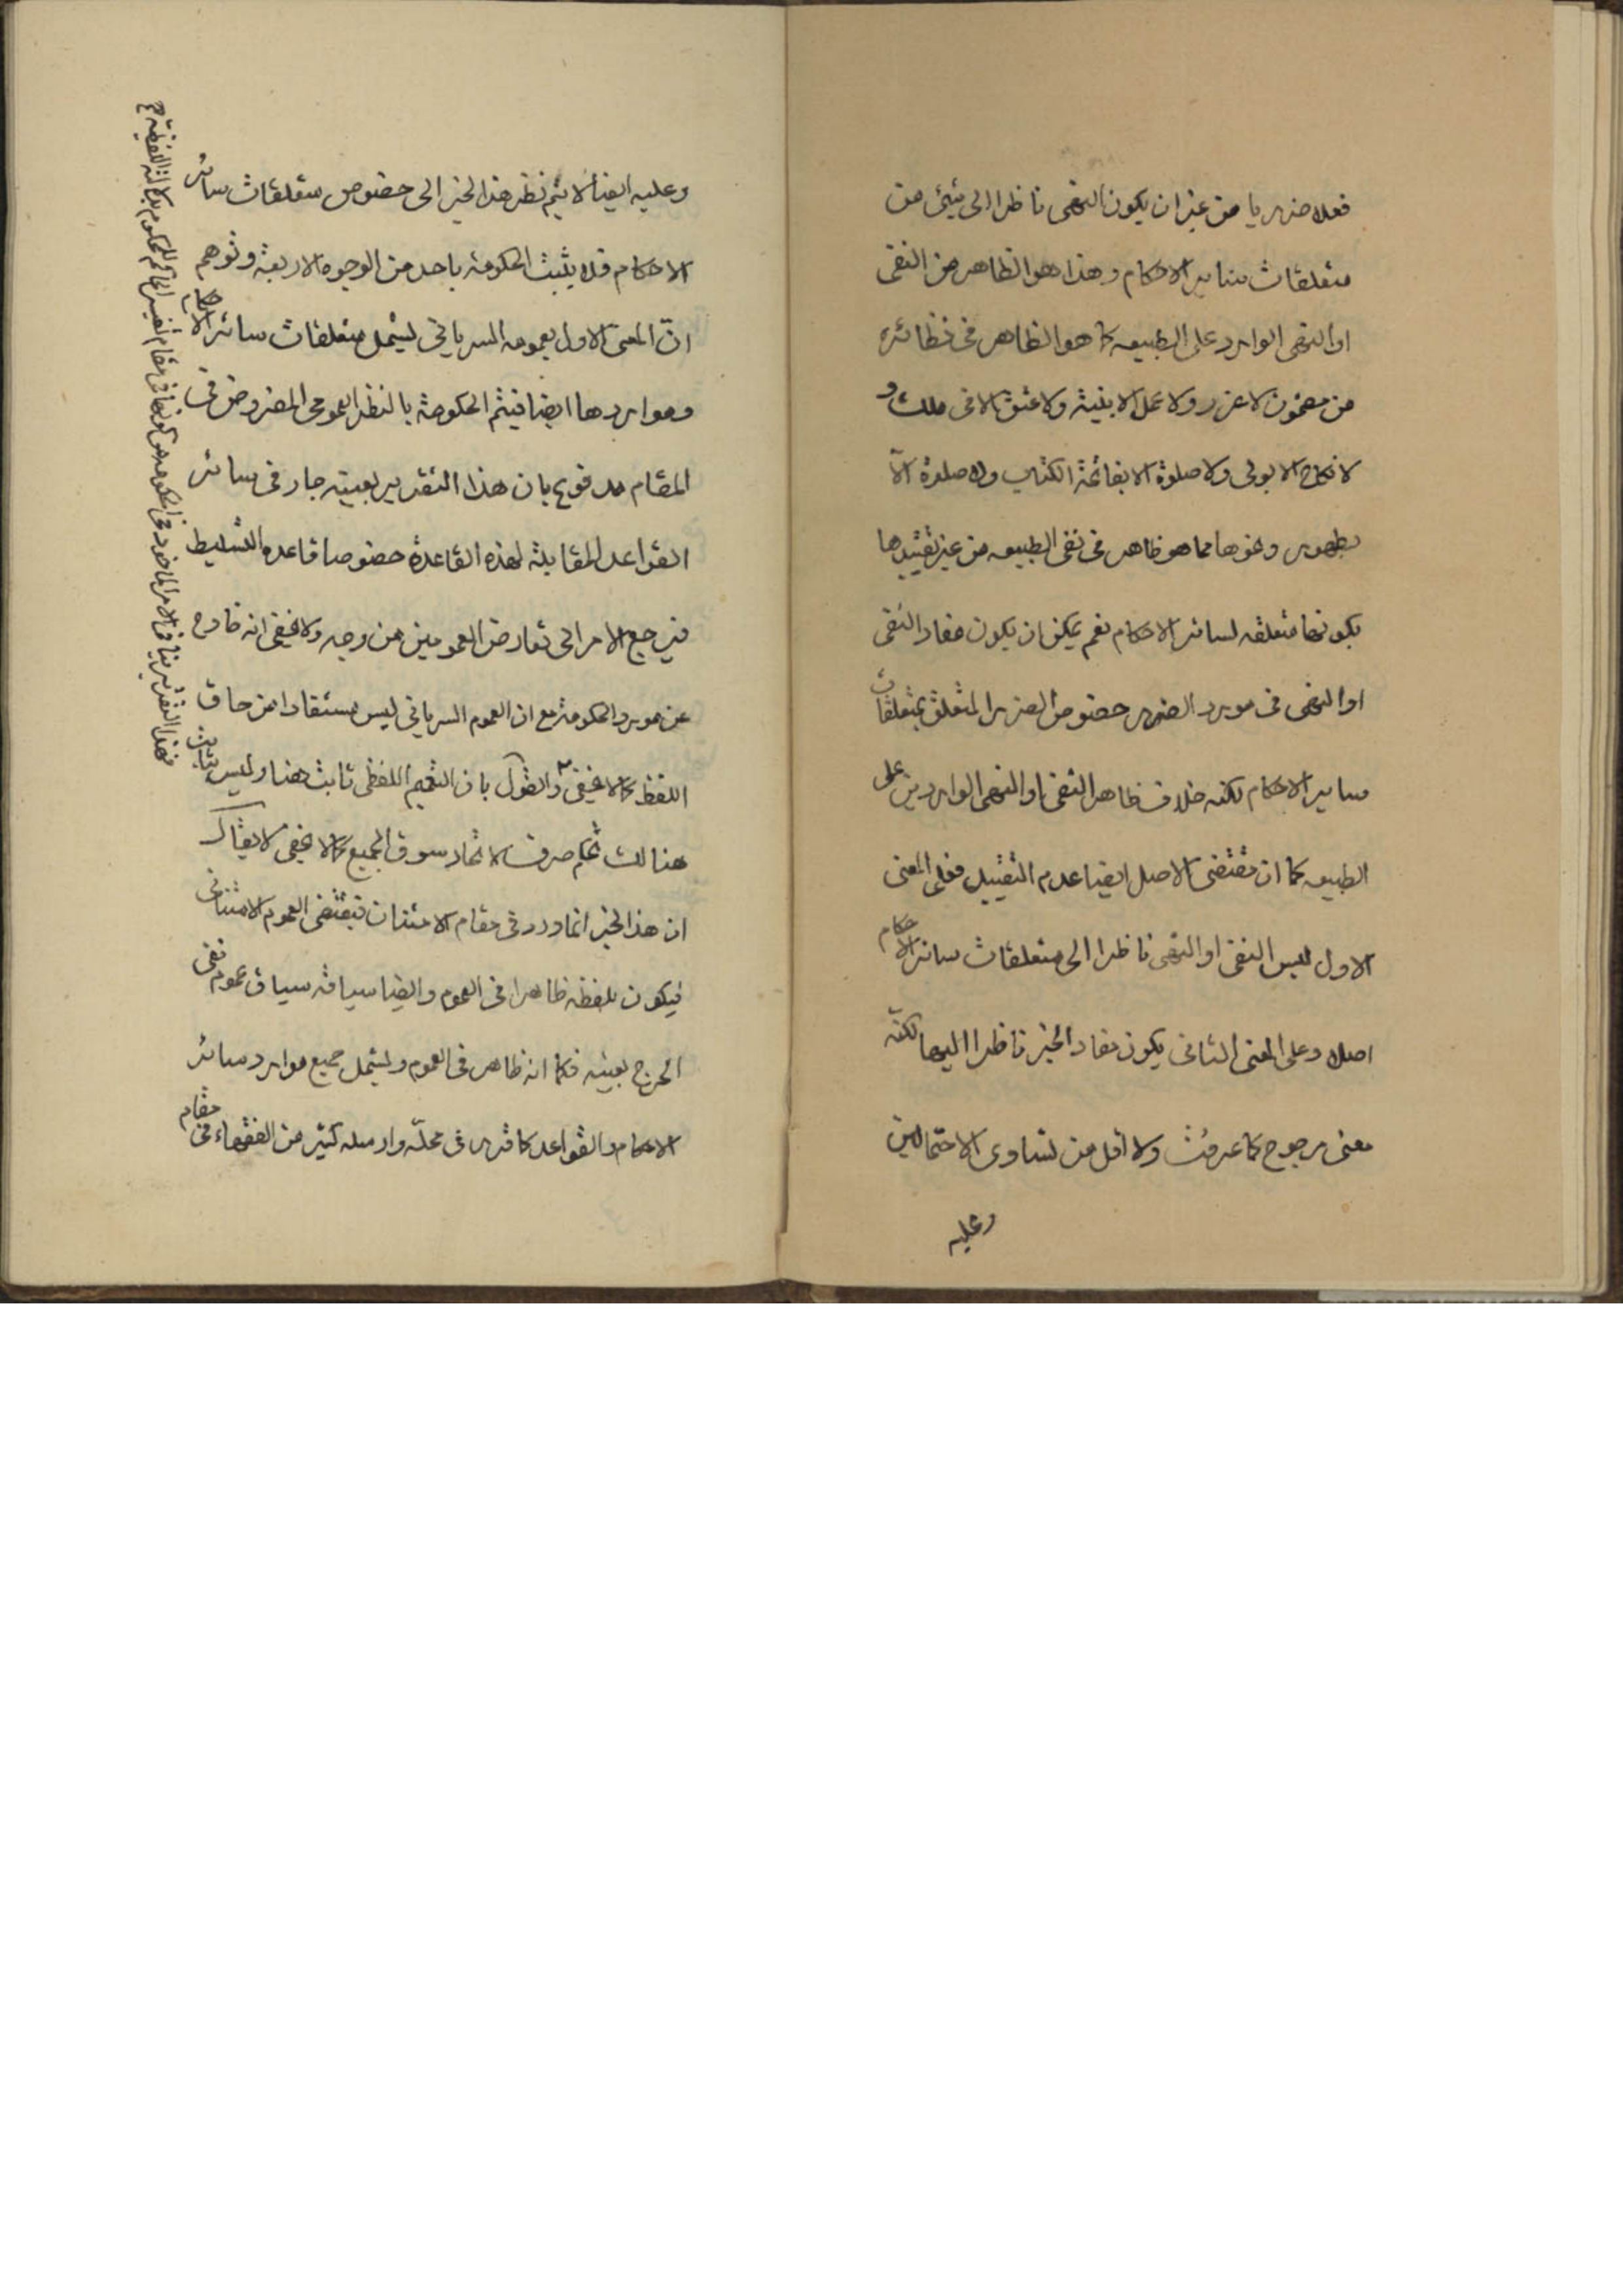 فعلا ضرريا من غير ان يكون النهى ناظرا الى شيئ من
متعلقات ساير الاحكام وهذا هو الظاهر من النفى
او النهى الوارد على الطبيعه كما هو الظاهر فى نظائره
من مضمون لا غرر ولا عمل الا بنيّة ولا عتق الا فى ملك و
لا نكاح الا بولى ولا صلوة الا بفاتحة الكتاب ولا صلوة الّا
بطهور ونحوها مما هو ظاهر فى نفى الطبيعه من غير تقييدها
بكونها متعلقه لسائر الاحكام نعم يمكن ان يكون مفاد النفى
او النهى فى مورد الضرر خصوص الضرر المتعلق بمتعلقات
ساير الاحكام لكنه خلاف ظاهر النفى او النهى الواردين على
الطبيعه كما ان مقتضى الاصل ايضا عدم التقييد فعلى المعنى
الاول ليس النفى او النهى ناظرا الى متعلقات سائر الاحكام
اصلا وعلى المعنى الثانى يكون مفاد الخبر ناظرا اليها لكنّه
معنى مرجوح كما عرفت ولا اقل من تساوى الاحتمالين
وعليه
وعليه ايضا لا يتم نظر هذا الخبر الى خصوص متعلقات سائر
الاحكام فلا يثبت الحكومة باحد من الوجوه الاربعة وتوهم
انّ المعنى الاول بعمومه السريانى ليشمل متعلقات سائر الاحكام
ومواردها ايضا فيتم الحكومة بالنظر العمومى المفروض فى
المقام مدفوع بان هذا التقرير بعينه جار فى سائر
القواعد المقابلة لهذه القاعدة خصوصا قاعده التسليط
فيرجع الامر الى تعارض العمومين من وجه ولا يخفى انه خارج
عن مورد الحكومة مع ان العموم السريانى ليس مستفادا من حاق
اللفظ كما لا يخفى والقول بان التعميم اللفظى ثابت هنا وليس بثابت
هنالك تحكم صرف لاتحاد سوق الجميع كما لا يخفى لا يقال
ان هذا الخبر انما ورد فى مقام الامتنان فيقتضى العموم الامتنانى
فيكون بلفظه ظاهرا فى العموم وايضا سياقه سياق عموم نفى
الحرج بعينه فكما انه ظاهر فى العموم وليشمل جميع موارد سائر
الاحكام والقواعد كما قرر فى محلّه وارسله كثير من الفقهاء فى مقام
فهذا التقدير ينافى الامر الماخوذ فى الحكومه هو كونها فى مقام تفسير الحاكم للمحكوم بدلالته اللفظية